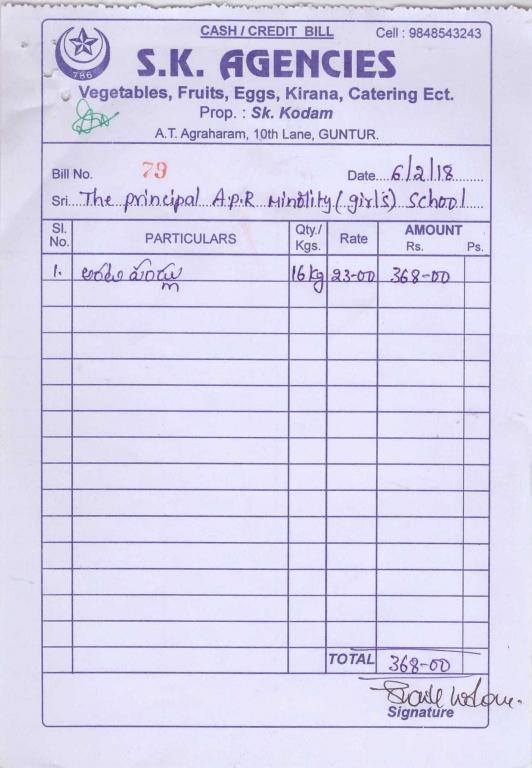 CASH / CREDIT BILL
Cell : 9848543243
786
S.K. AGENCIES
Vegetables, Fruits, Eggs, Kirana, Catering Ect.
Prop. : Sk. Kodam
A.T. Agraharam, 10th Lane, GUNTUR.
Bill No. 79 Date 6/2/18
Sri. The principal A.P.R Minolity (girls) School
Sl. No. PARTICULARS Qty./ Kgs. Rate AMOUNT Rs. Ps.
1. అరటి పండ్లు 16 kg 23-00 368-00
TOTAL 368-00
Signature